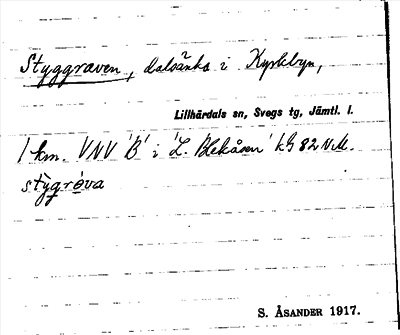 Styggraven, dalsänka i Kyrkbyn,
Lillhärdals sn, Svegs tg, Jämtl. l.
1 km. VNV 'B' i 'L. Blekåsen' kb 82 N.M.
stỳgrǫ́va
S. ÅSANDER 1917.